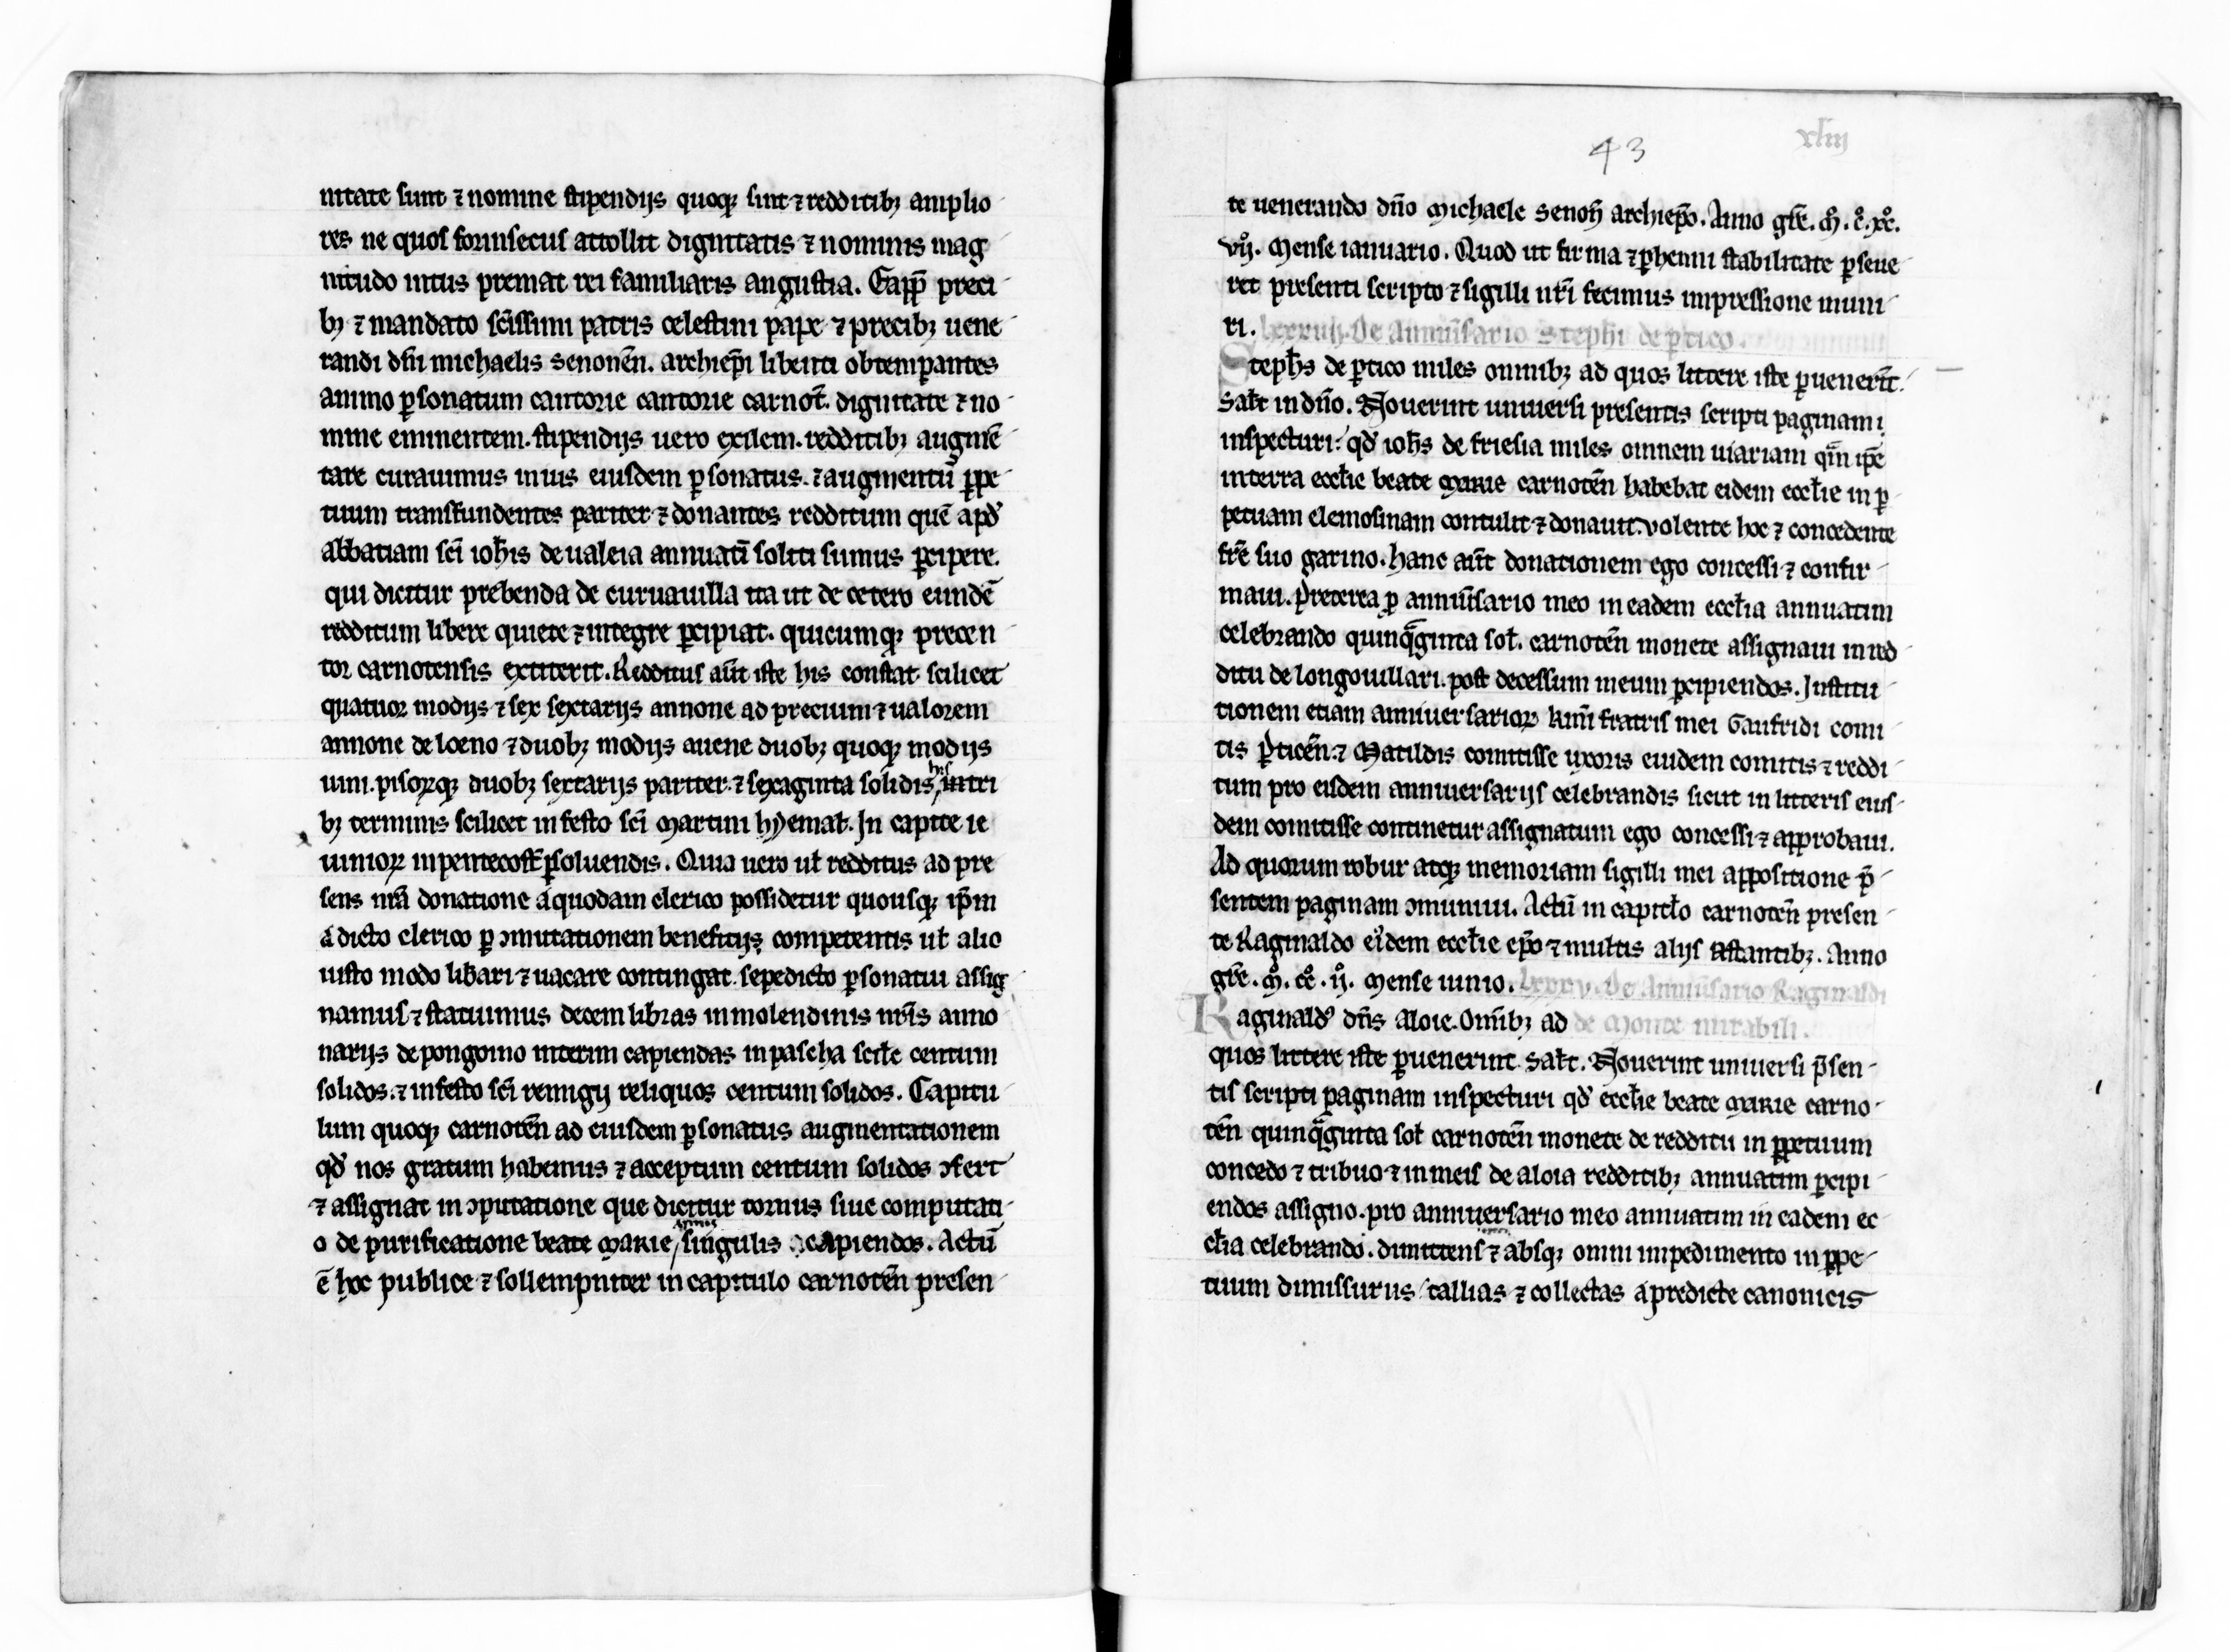 nitate sunt ⁊ nomine stipendijs quoq; sint ⁊ redditib; amplio
res ne quos forinsecus attollit dignitatis ⁊ nominis mag
nitudo intus premat rei familiaris angustia. Eapp̄ preci
b; ⁊ mandato sc̄issimi patris celestini pape ⁊ precib; uene
randi dn̄i michaelis senonēn. archiep̄i libenti obtemꝑantes
animo ꝑsonatum cantorie cantorie carnot̄. dignitate ⁊ no
mine eminentem. stipendijs uero exilem. redditib; augmē
tare curauimus in ius eiusdem ꝑsonatus. ⁊ augmentū ꝑpe
tuum transfundentes pariter ⁊ donantes redditum quē apd̄
abbatiam sc̄i ioh̄is de ualeia annuatī soliti sumus ꝑcipere.
qui dicitur prebenda de curuauilla ita ut de cetero eundē
redditum libere quiete ⁊ integre ꝑcipiat. quicumq; precen
tor carnotensis extiterit. Redditus aūt iste his constat scilicet
quatuor modijs ⁊ sex sextarijs annone ad precium ⁊ ualorem
annone de loeno ⁊ duob; modijs auene duob; quoq; modijs
uini. pisoꝝq; duob; sextarijs pariter. ⁊ sexaginta solidis his in tri
b; terminis scilicet in festo sc̄i martini hyemał. In capite ie
iunioꝝ in pentecost̄ ꝑsoluendis. Quia uero ił redditus ad pre
sens nr̄a donatione a quodam clerico possidetur quousq; ip̄m
a dicto clerico ꝑ ɔmutationem beneficijs competentis uł alio
iusto modo lib̄ari ⁊ uacare contingat. sepedicto ꝑsonatui assig
namus ⁊ statuimus decem libras in molendinis nr̄is anno
narijs de pongoino interim capiendas in pascha scił centum
solidos. ⁊ in festo sc̄i remigij reliquos centum solidos. Capitu
lum quoq; carnotēn ad eiusdem ꝑsonatus augmentationem
qd̄ nos gratum habemus ⁊ acceptum centum solidos ɔfert
⁊ assignat in ɔputatione que dicitur tornus siue computati
o de purificatione beate marie / annis singulis capiendos. Actū
ē hoc publice ⁊ sollempniter in capitulo carnotēn presen
43 xliij
te uenerando dn̄o michaele senoń archiep̄o. Anno gr̄e. m̊. c̊. xc̊.
vij̊. mense ianuario. Quod ut firma ⁊ ꝑhenni stabilitate ꝑseue
ret presenti scripto ⁊ sigilli nr̄i fecimus impressione muni
ri. lxxxiiij. De Anniūsario Stephi de ꝑtico.
Steph̄s de ꝑtico miles omnib; ad quos littere iste ꝑuenerīt.
Sałt in dn̄o. Nouerint uniuersi presentis scripti paginam
inspecturi: qd̄ ioh̄s de friesia miles omnem uiariam qm̄ ip̄e
in terra eccłie beate marie carnotēn habebat eidem eccłie in ꝑ
petuam elemosinam contulit ⁊ donauit. volente hoc ⁊ concedente
fr̄e suo garino. hanc aūt donationem ego concessi ⁊ confir
maui. Preterea ꝑ anniūsario meo in eadem eccłia annuatim
celebrando quinq̄ginta soł. carnotēn monete assignaui in red
ditu de longouillari. post decessum meum ꝑcipiendos. Institu
tionem etiam anniuersarioꝝ kmī fratris mei Gaufridi comi
tis ꝑticēn. ⁊ Matildis comitisse uxoris eiusdem comitis ⁊ reddi
tum pro eisdem anniuersarijs celebrandis sicut in litteris eius
dem comitisse continetur assignatum ego concessi ⁊ approbaui.
Ad quorum robur atq; memoriam sigilli mei appositione p̄
sentem paginam ɔmuniui. Actū in capitło carnotēn presen
te Raginaldo eiᵒdem eccłie ep̄o ⁊ multis alijs astantib;. Anno
gr̄e. m̊. cc̊. ij̊. mense iunio. lxxxv. De Anniūsario Raginaldi
Raginald᾽ dn̄s Aloie. Omīb; ad de Monte mirabili.
quos littere iste ꝑuenerint. Sałt. Nouerint uniuersi p̄sen
tis scripti paginam inspecturi qd̄ eccłie beate marie carno
tēn quinq̄ginta soł carnotēn monete de redditu in ꝑpetuum
concedo ⁊ tribuo ⁊ in meis de aloia redditib; annuatim ꝑcipi
endos assigno. pro anniuersario meo annuatim in eadem ec
cłia celebrando. dimittens ⁊ absq; omni impedimento in ꝑpe
tuum dimissurus / tallias ⁊ collectas a predicte canonicis